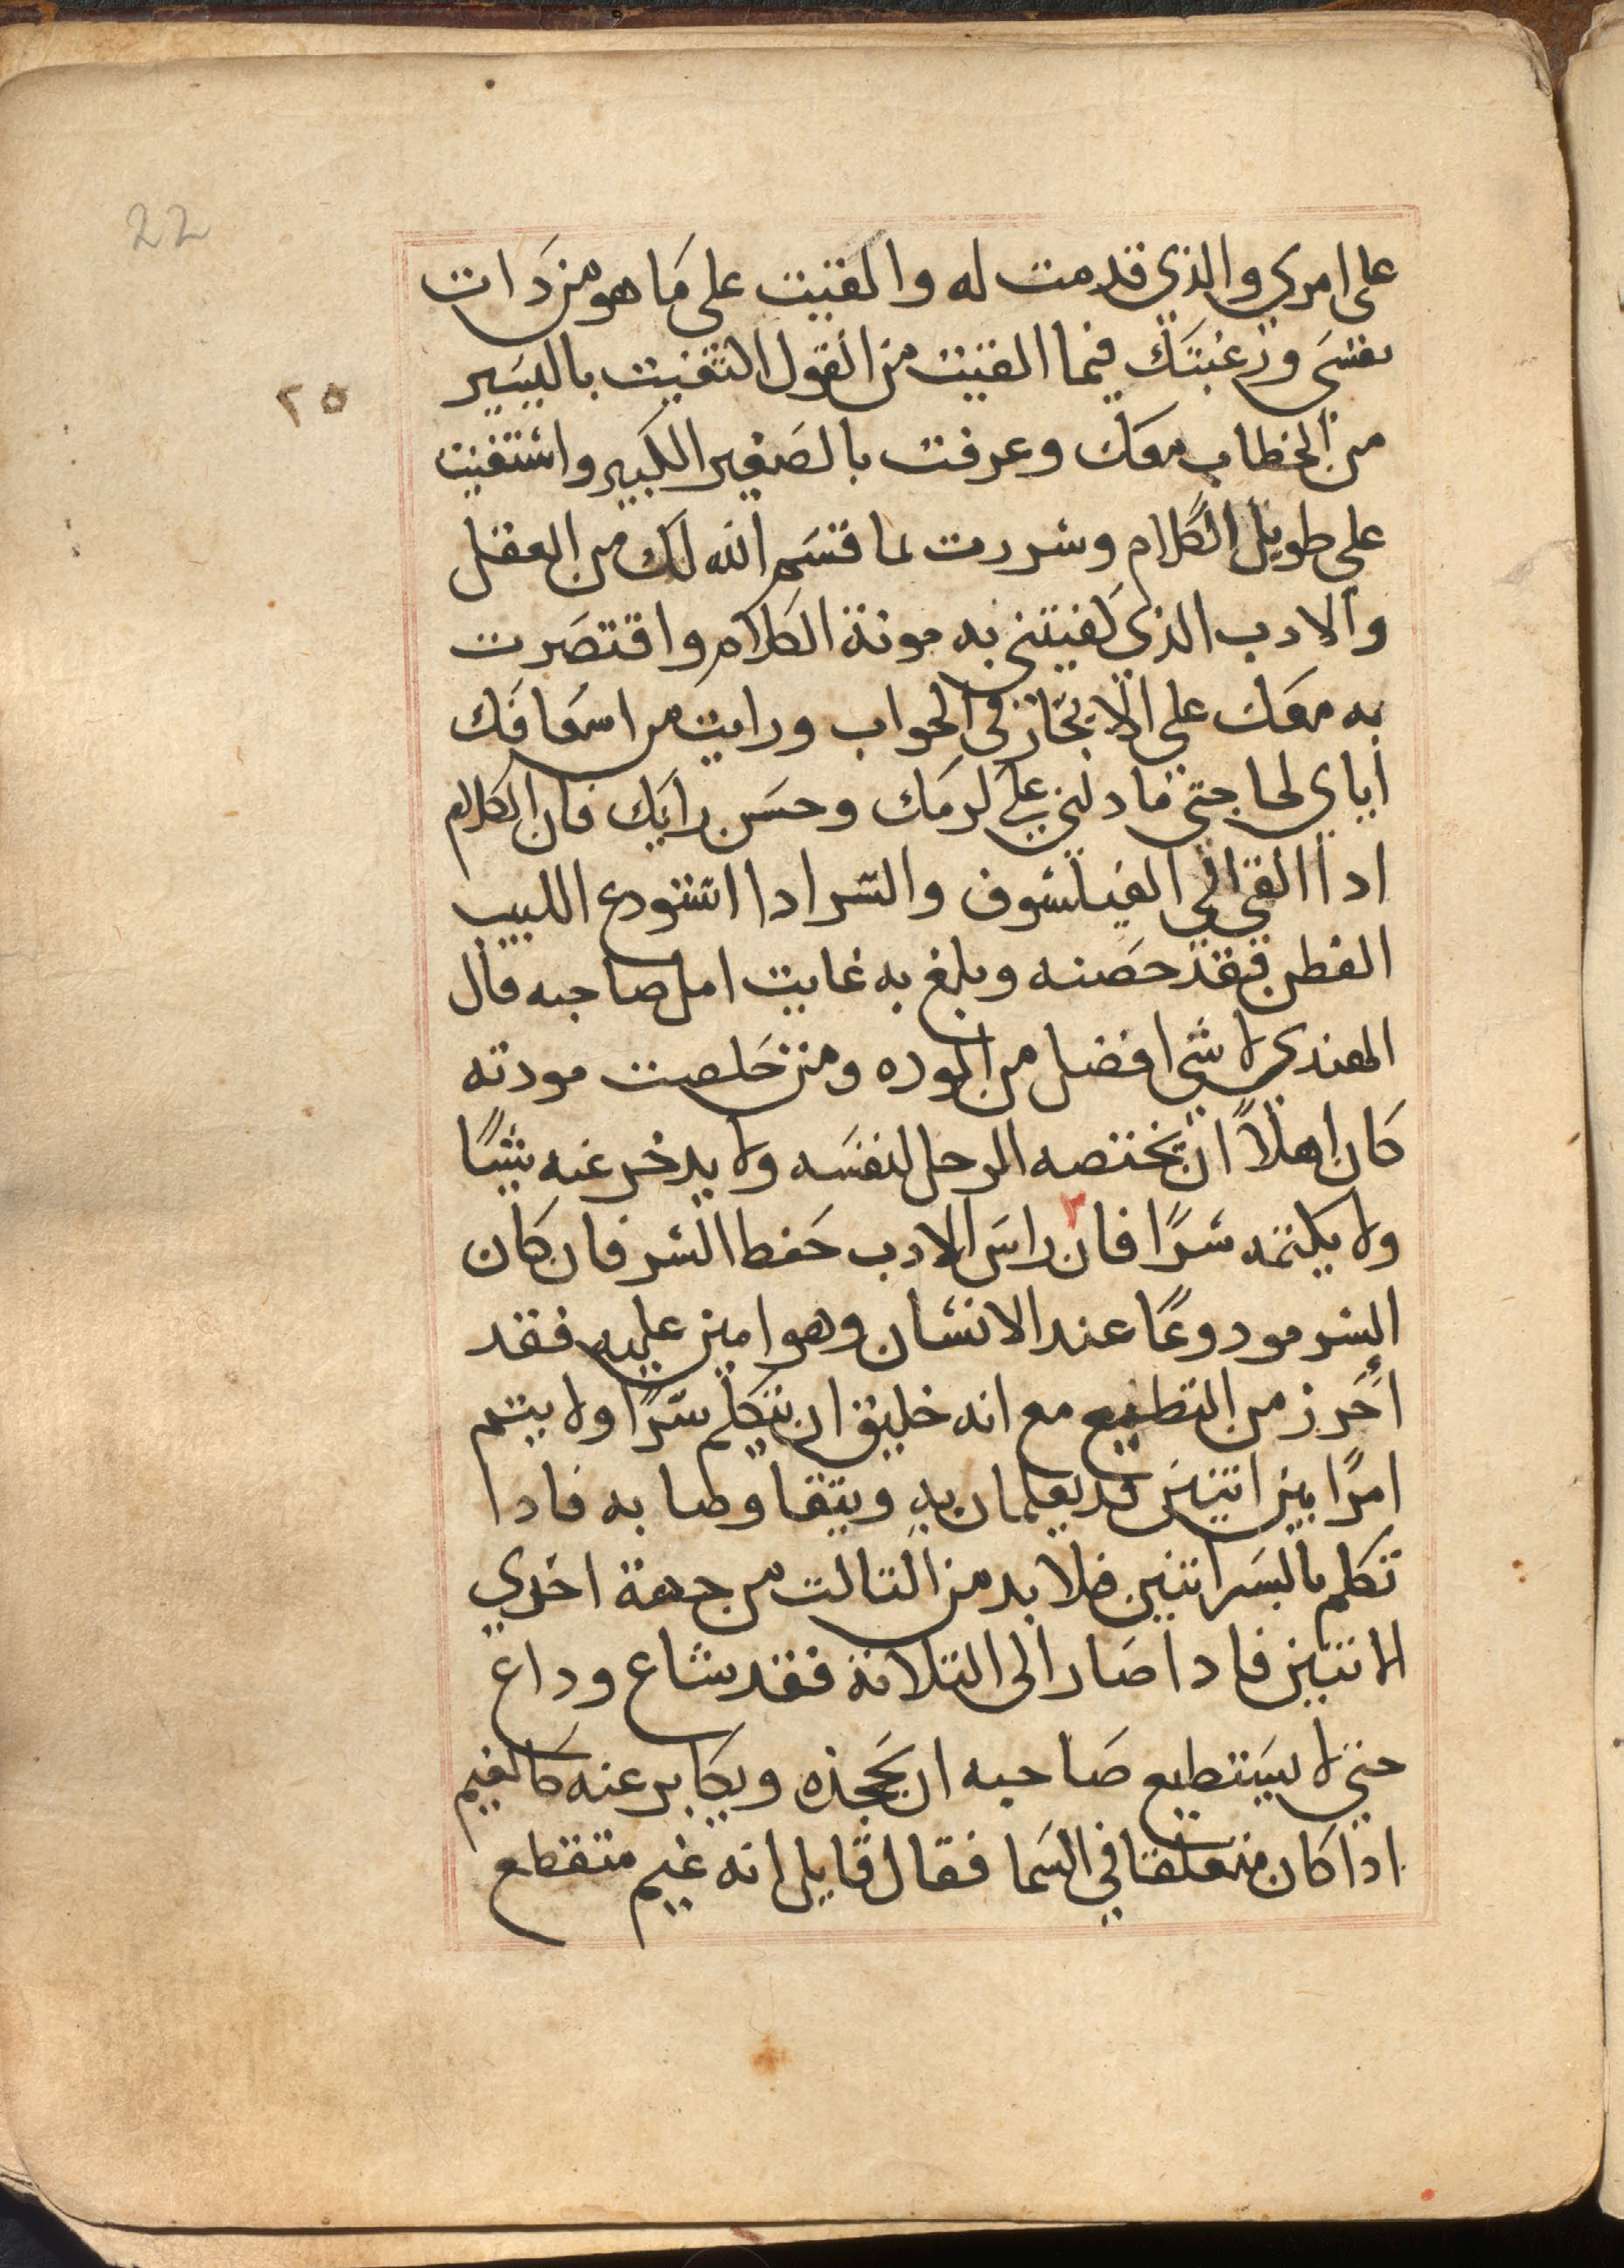 22
٢٥
على امري والذي قدمت له والقيت على ما هو من دات
نفسي ورغبتك فيما القيت من القول اكتفيت باليسير
من الخطاب معك وعرفت بالصغير الكبير واستغنيت
على طويل الكلام وسررت لما قسم الله لك من العقل
والادب الذي كفيتني به مونة الكلام واقتصرت
به معك على الايجاز في الجواب ورايت من اسعافك
اياي لحاجتي ما دلني على كرمك وحسن رايك فان الكلام
ادا القي الي الفيلسوف والسر ادا استودع اللبيب
الفطن فقد حصنه وبلغ به غايت امل صاحبه قال
الهندي لا شي افضل من الموده ومن خلصت مودته
كان اهلاً ان يختصه الرجل لنفسه ولا يدخر عنه شيًا
ولا يكتمه سرًا فان راس الادب حفظ السر فان كان
السر مودوعًا عند الانسان وهو امين عليه فقد
أحرز من التطييع مع انه خليق ان يتكلم سرًا ولا يتم
امرًا بين اتنين قد يعلمان به ويتفاوضا به فادا
تكلم بالسر اتنين فلا بد من التالت من جهة اخدي
الاتنين فادا صار الى التلاتة فقد شاع وداع
حتي لا يستطيع صاحبه ان يجحذه ويكابر عنه كالغيم
ادا كان متعلقا في السما فقال قايل انه غيم متقطع